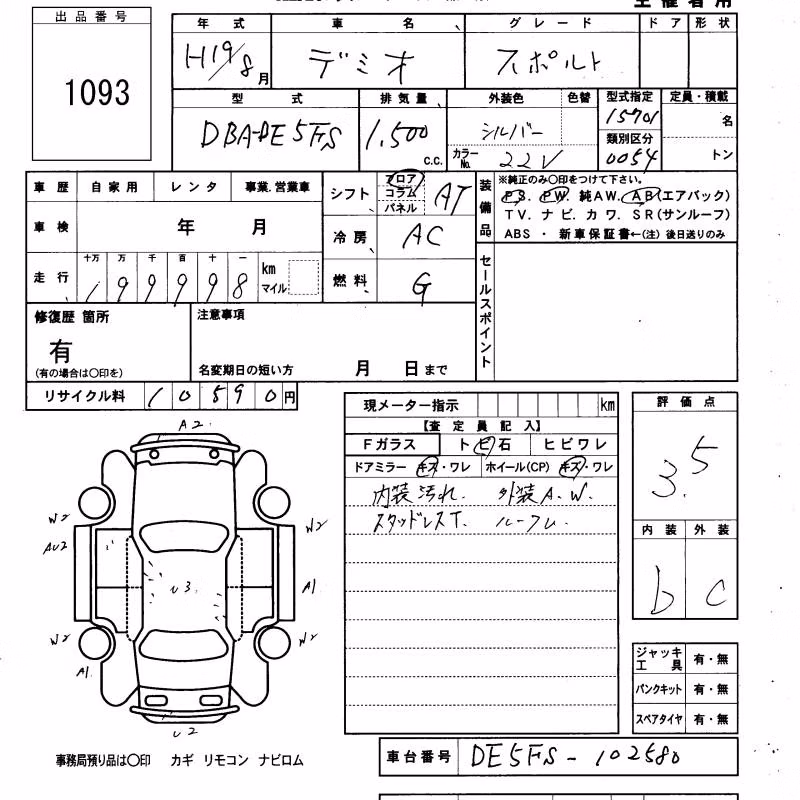 出品番号
1093
年式 車名 グレード ドア 形状
H19/8月 デミオ スポルト
型式 排気量 外装色 色替 型式指定 定員・積載
DBA-DE5FS 1,500 c.c. シルバー 15701 名
類別区分
カラーNo. 22V 0054 トン
車歴 自家用 レンタ 事業.営業車
シフト フロア コラム パネル AT
装備品
※純正のみ〇印をつけて下さい。
PS. PW. 純AW. AB(エアバック)
TV. ナビ. カワ. SR(サンルーフ)
ABS ・ 新車保証書←(注) 後日送りのみ
車検 年 月
冷房 AC
走行 十万 万 千 百 十 一
199998 km マイル
燃料 G
セールスポイント
修復歴 箇所
有
(有の場合は〇印を)
注意事項
名変期日の短い方 月 日まで
リサイクル料 10590円
現メーター指示 km
【査定員記入】
Fガラス トビ石 ヒビワレ
ドアミラー キズ・ワレ ホイール(CP) キズ・ワレ
内装汚れ. 外装A.W.
スタッドレスT. ルーフU.
評価点
3.5
内装 外装
b c
A2.
W2
AU2
W2
A1
U3.
W2
W2
A1.
U2
ジャッキ工具 有・無
パンクキット 有・無
スペアタイヤ 有・無
事務局預り品は〇印 カギ リモコン ナビロム
車台番号 DE5FS-102580